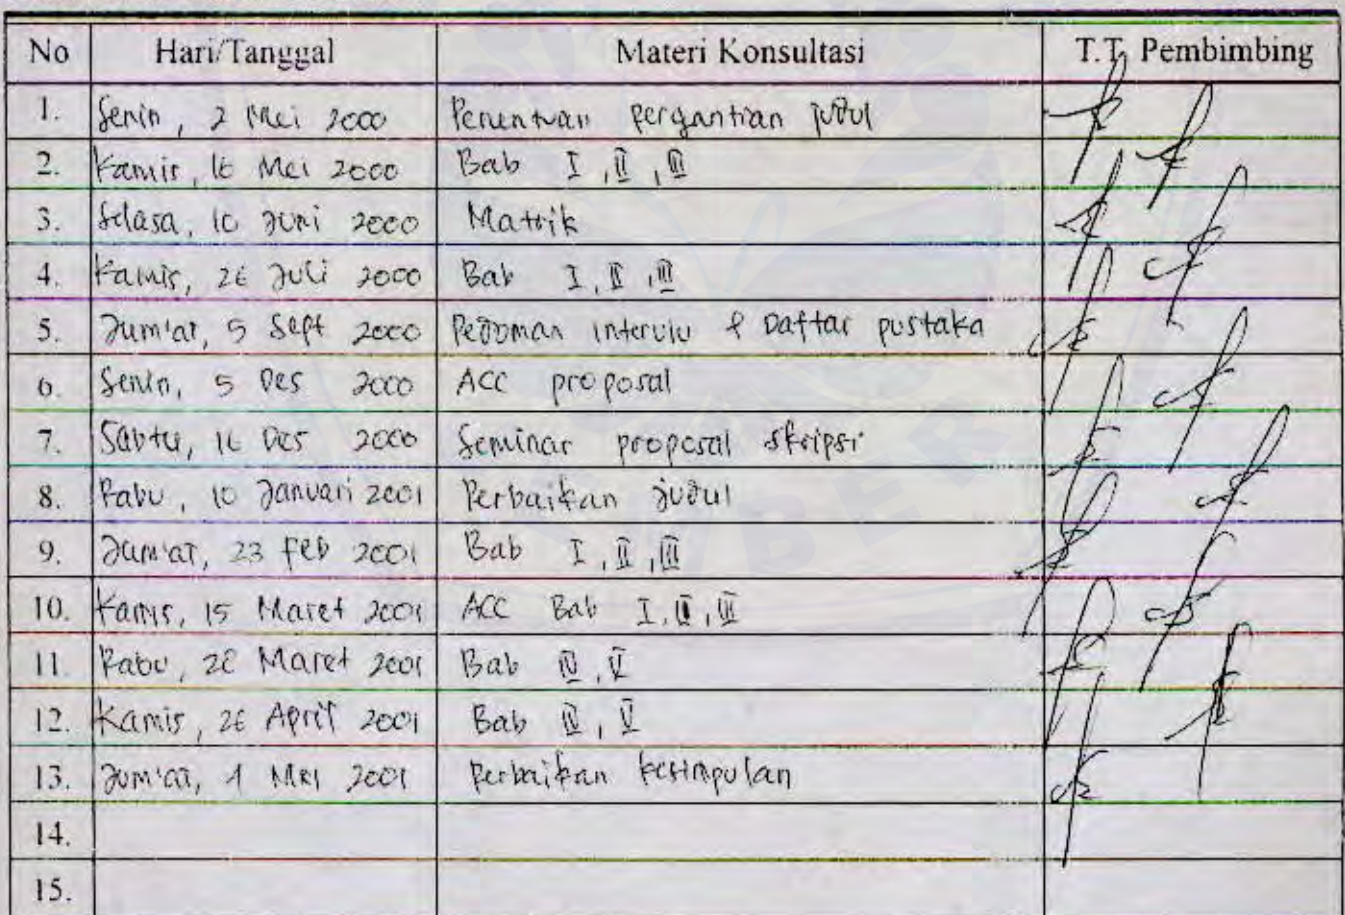 No Hari/Tanggal Materi Konsultasi T.T. Pembimbing
1. Senin, 2 Mei 2000 Penentuan pergantian judul
2. Kamis, 16 Mei 2000 Bab I, II, III
3. Selasa, 10 Juni 2000 Matrik
4. Kamis, 26 Juli 2000 Bab I, II, III
5. Jum'at, 5 Sept 2000 Pedoman interviu & Daftar pustaka
6. Senin, 5 Des 2000 ACC proposal
7. Sabtu, 16 Des 2000 Seminar proposal skripsi
8. Rabu, 10 Januari 2001 Perbaikan judul
9. Jum'at, 23 Feb 2001 Bab I, II, III
10. Kamis, 15 Maret 2001 ACC Bab I, II, III
11. Rabu, 28 Maret 2001 Bab IV, V
12. Kamis, 26 April 2001 Bab IV, V
13. Jum'at, 4 Mei 2001 Perbaikan kesimpulan
14.
15.